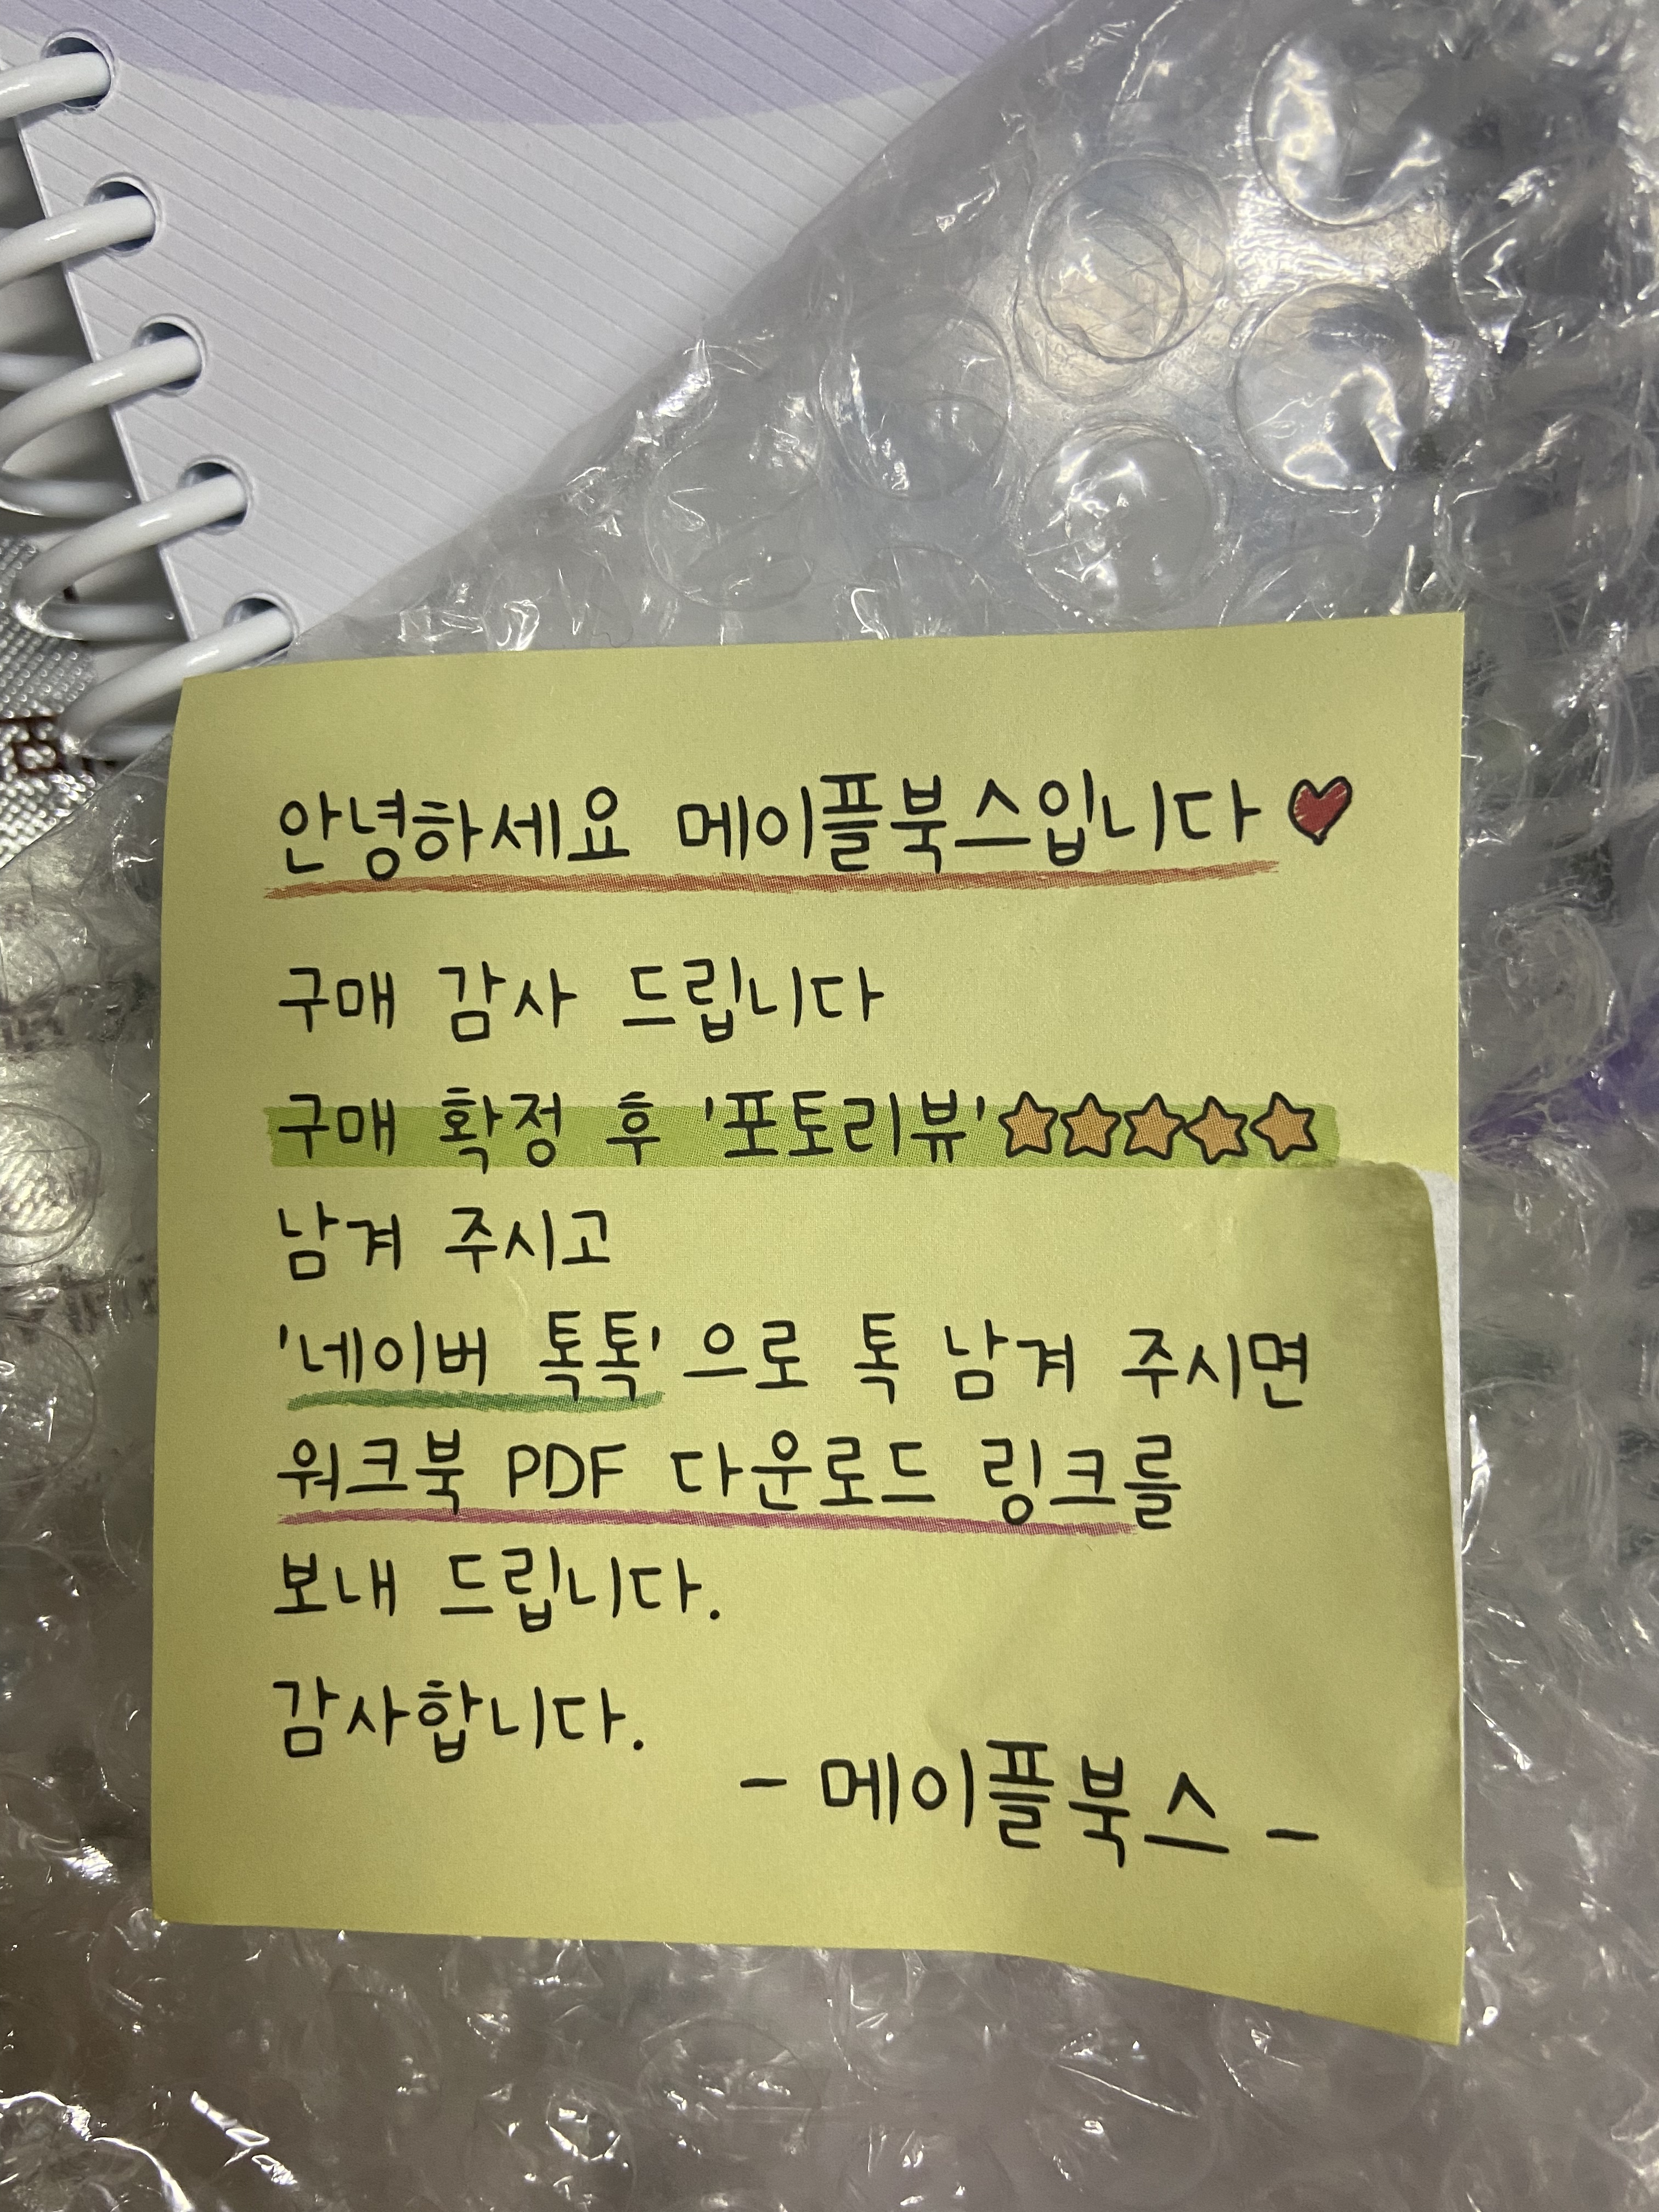 안녕하세요 메이플북스입니다
구매 감사 드립니다
구매 확정 후 '포토리뷰'☆☆☆☆☆
남겨 주시고
'네이버 톡톡'으로 톡 남겨 주시면
워크북 PDF 다운로드 링크를
보내 드립니다.
감사합니다.
- 메이플북스 -